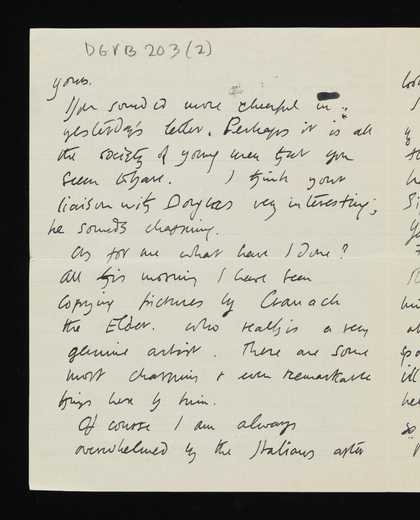 DGVB 203 (2)
yours.
You sounded more cheerful in
yesterday's letter. Perhaps it is all
the society of young men that you
seem to have. I think your
liaison with Douglas very interesting;
he sounds charming.
As for me what have I done?
All this morning I have been
copying pictures by Cranach
the Elder. Who really is a very
genuine artist. There are some
most charming & even remarkable
things here by him.
Of course I am always
overwhelmed by the Italians after